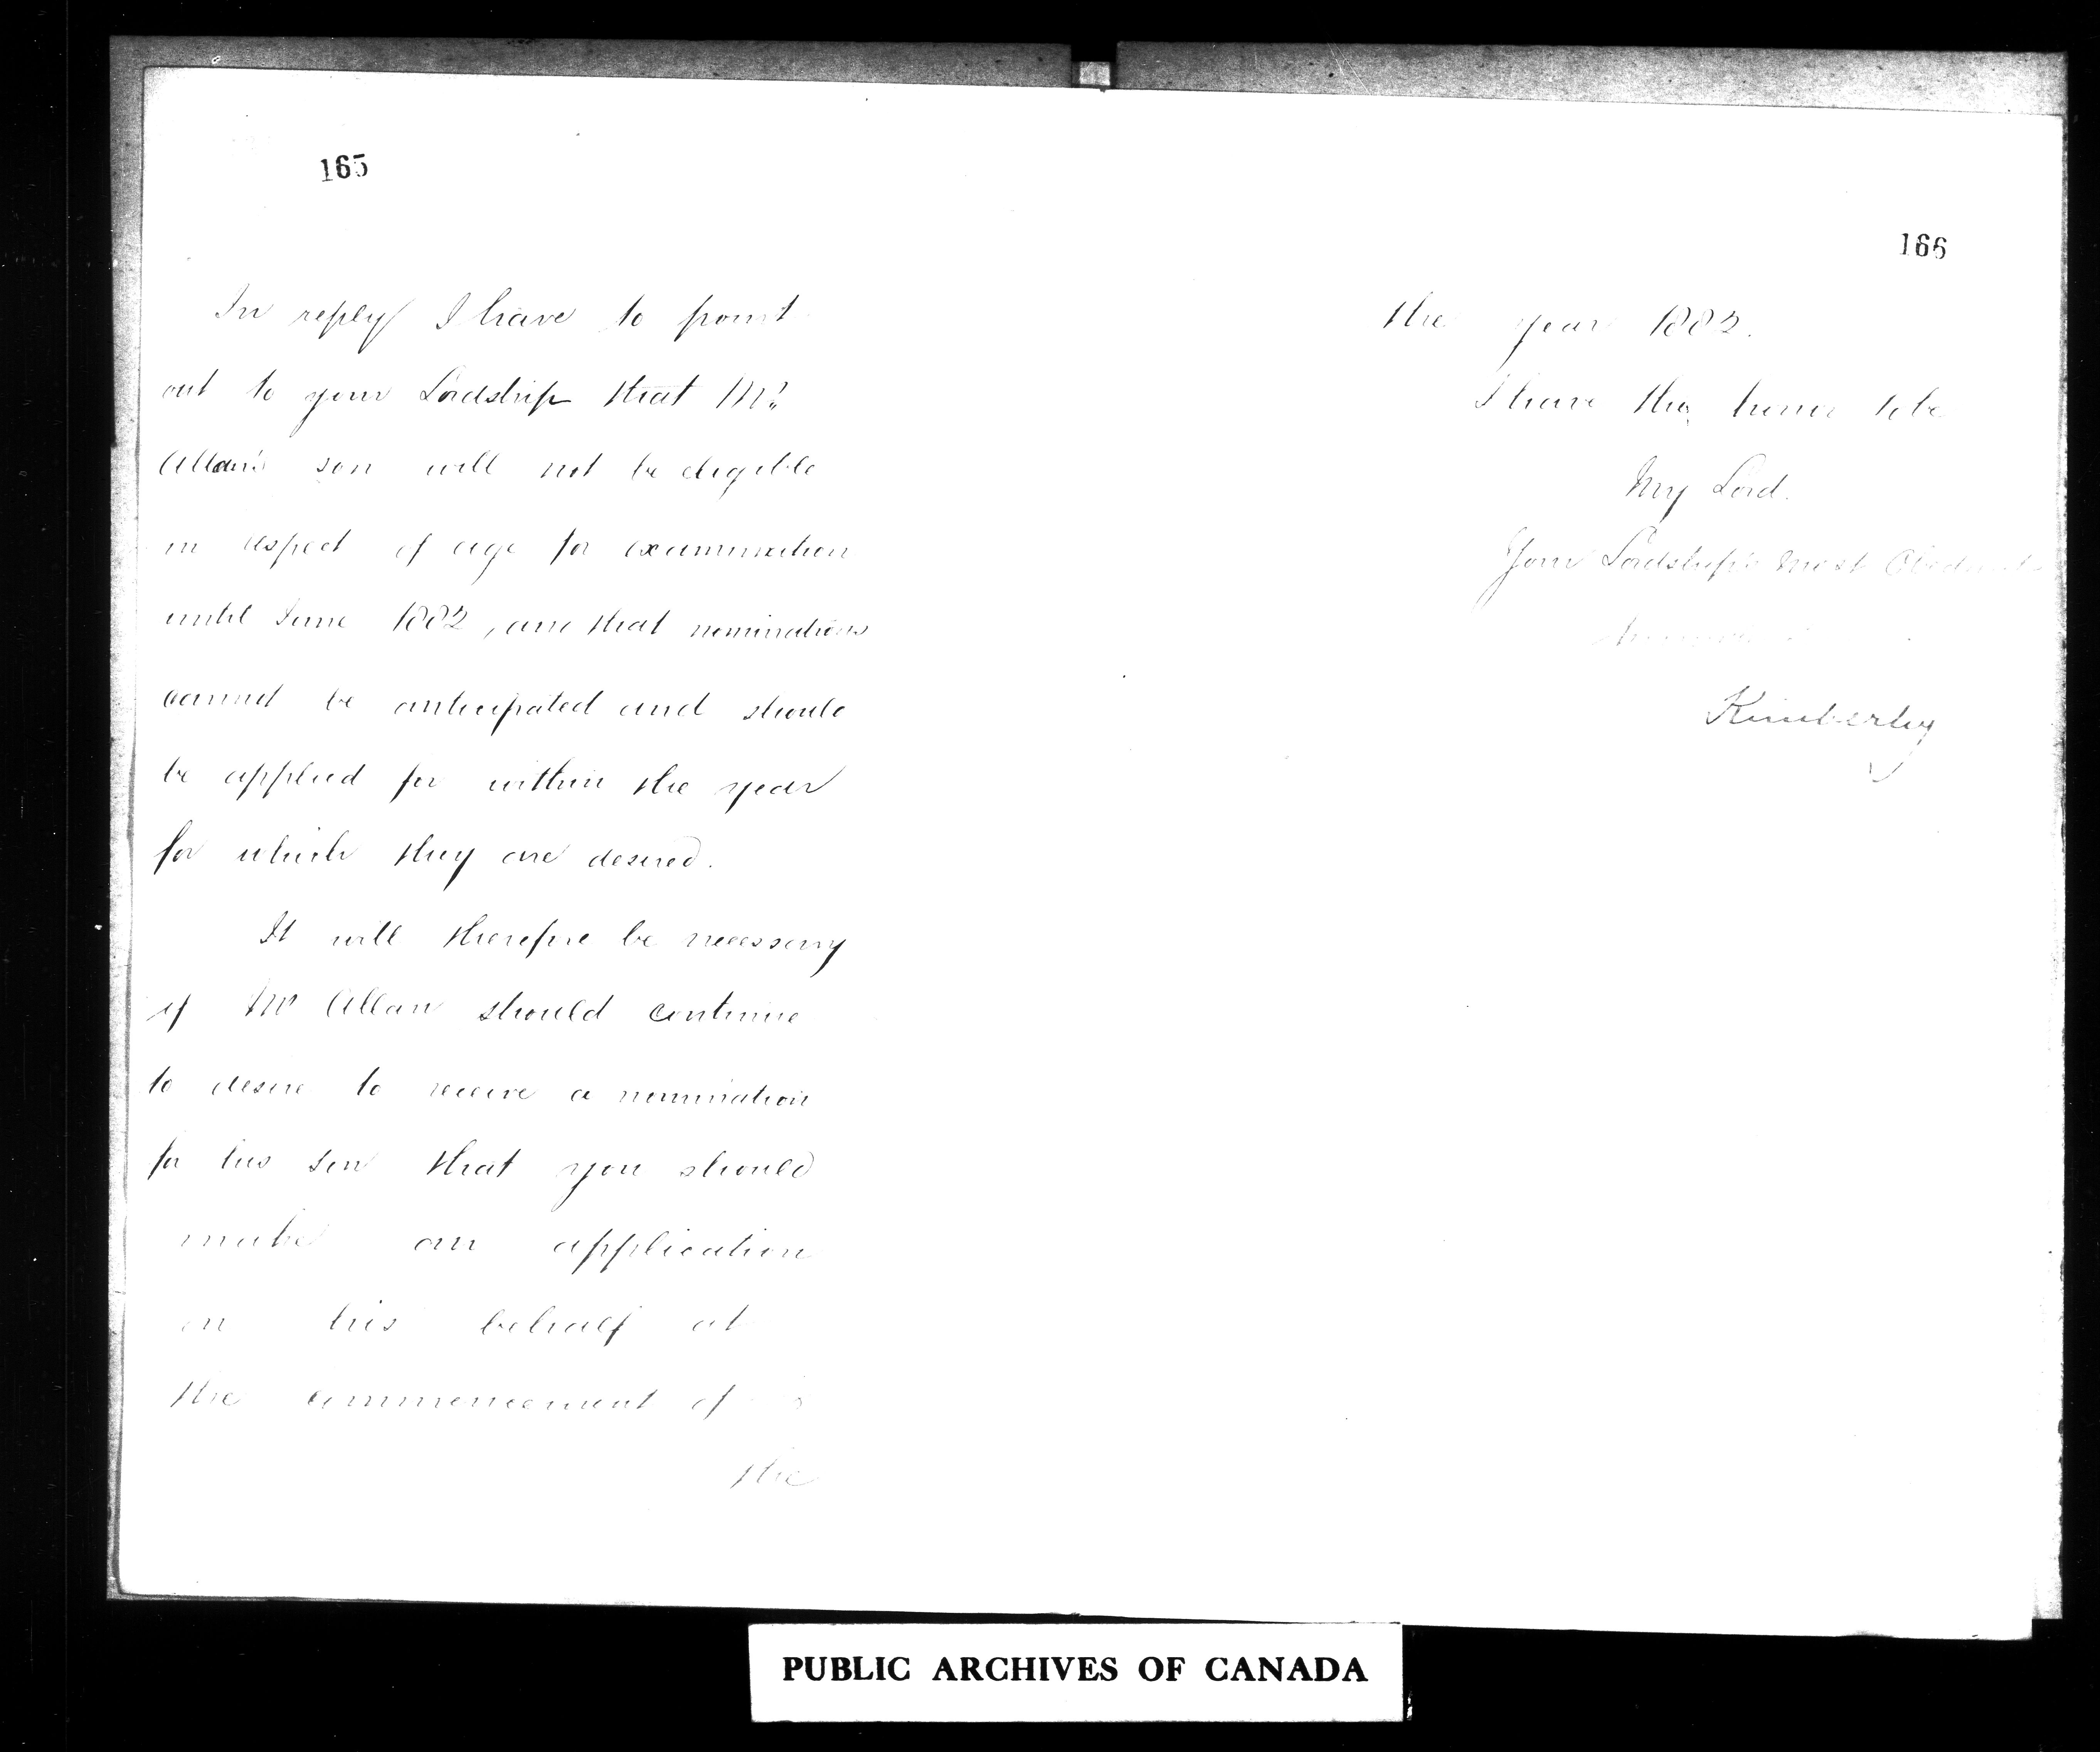 165
In reply I have to point
out to your Lordship that Mr.
Allan's son will not be eligible
in respect of age for examination
until June 1882, and that nominations
cannot be anticipated and should
be applied for within the year
for which they are desired.
It will therefore be necessary
if Mr Allan should continue
to desire to receive a nomination
for his son that you should
make an application
on his behalf at
the commencement of
the
166
the year 1882.
I have the honor to be
My Lord.
Your Lordship's most Obedient
Kimberley
PUBLIC ARCHIVES OF CANADA